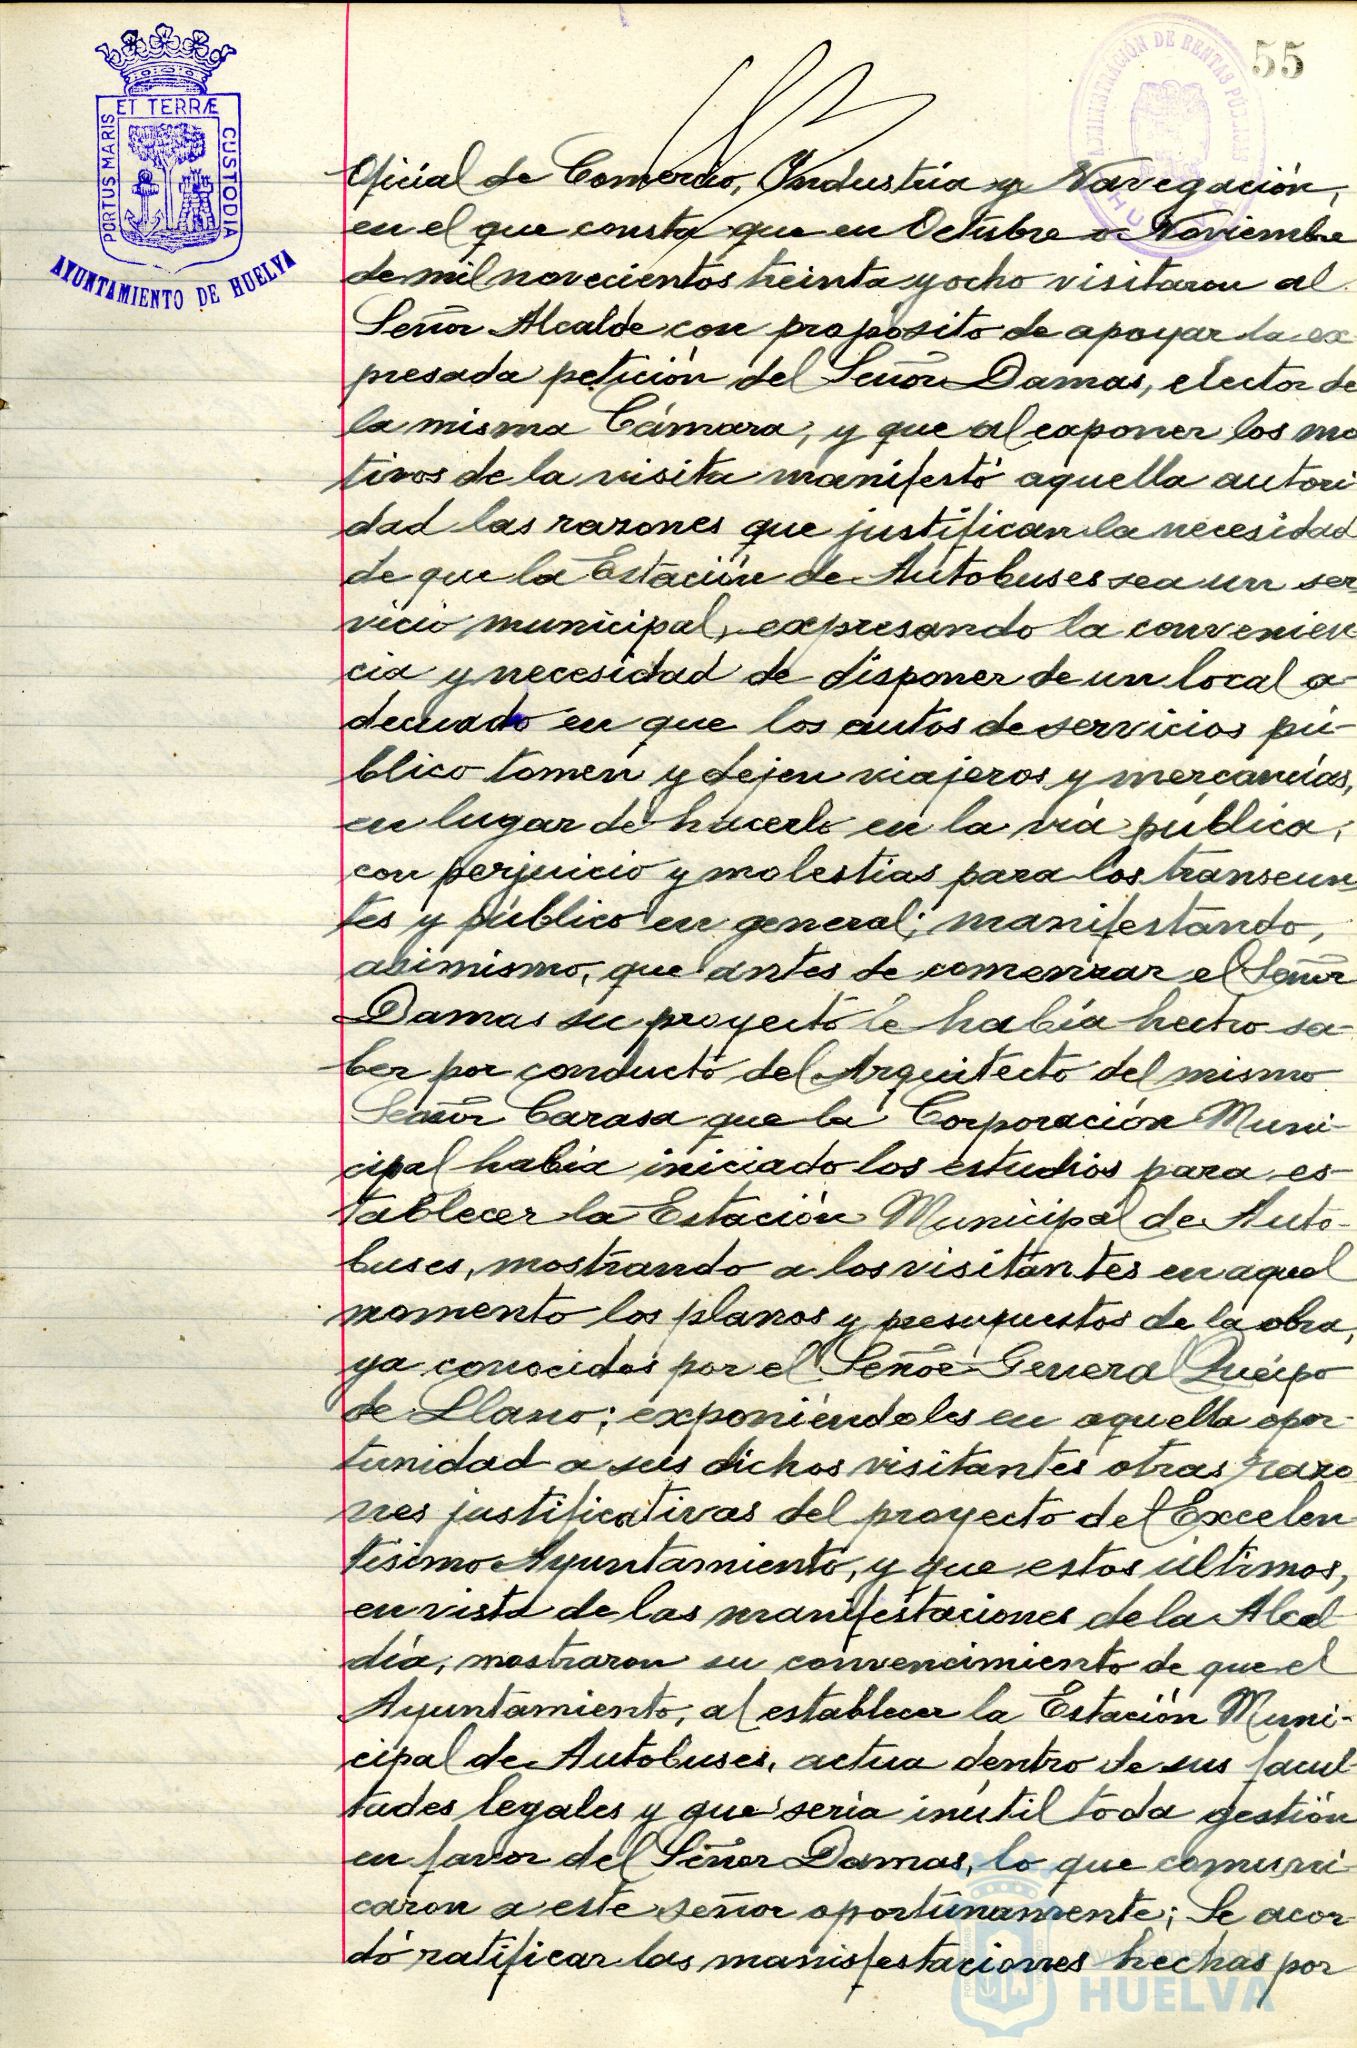 55
ADMINISTRACIÓN DE RENTAS PÚBLICAS
HUELVA
PORTUS MARIS ET TERRÆ CUSTODIA
AYUNTAMIENTO DE HUELVA
Oficial de Comercio, Industria y Navegación,
en el que consta que en Octubre o Noviembre
de mil novecientos treinta y ocho visitaron al
Señor Alcalde con proposito de apoyar la ex
presada petición del Señor Damas, elector de
la misma Cámara, y que al exponer los mo
tivos de la visita manifestó aquella autori
dad las razones que justifican la necesidad
de que la Estación de Autobuses sea un ser
vicio municipal, expresando la convenien
cia y necesidad de disponer de un local a-
decuado en que los autos de servicios pú-
blico tomen y dejen viajeros y mercancías,
en lugar de hacerlo en la vía pública,
con perjuicio y molestias para los transeun
tes y público en general; manifestando,
asimismo, que antes de comenzar el Señor
Damas su proyecto le había hecho sa-
ber por conducto del Arquitecto del mismo
Señor Carasa que la Corporación Muni-
cipal había iniciado los estudios para es-
tablecer la Estación Municipal de Auto-
buses, mostrando a los visitantes en aquel
momento los planos y presupuestos de la obra,
ya conocidos por el Señor General Queipo
de Llano; exponiéndoles en aquella opor-
tunidad a sus dichos visitantes otras razo
nes justificativas del proyecto del Excelen
tísimo Ayuntamiento, y que estos últimos,
en vista de las manifestaciones de la Alcal
día, mostraron su convencimiento de que el
Ayuntamiento, al establecer la Estación Muni-
cipal de Autobuses, actua dentro de sus facul
tades legales y que sería inútil toda gestión
en favor del Señor Damas, lo que comuni
caron a este señor oportunamente; Se acor
dó ratificar las manisfestaciones hechas por
Ayuntamiento de
HUELVA